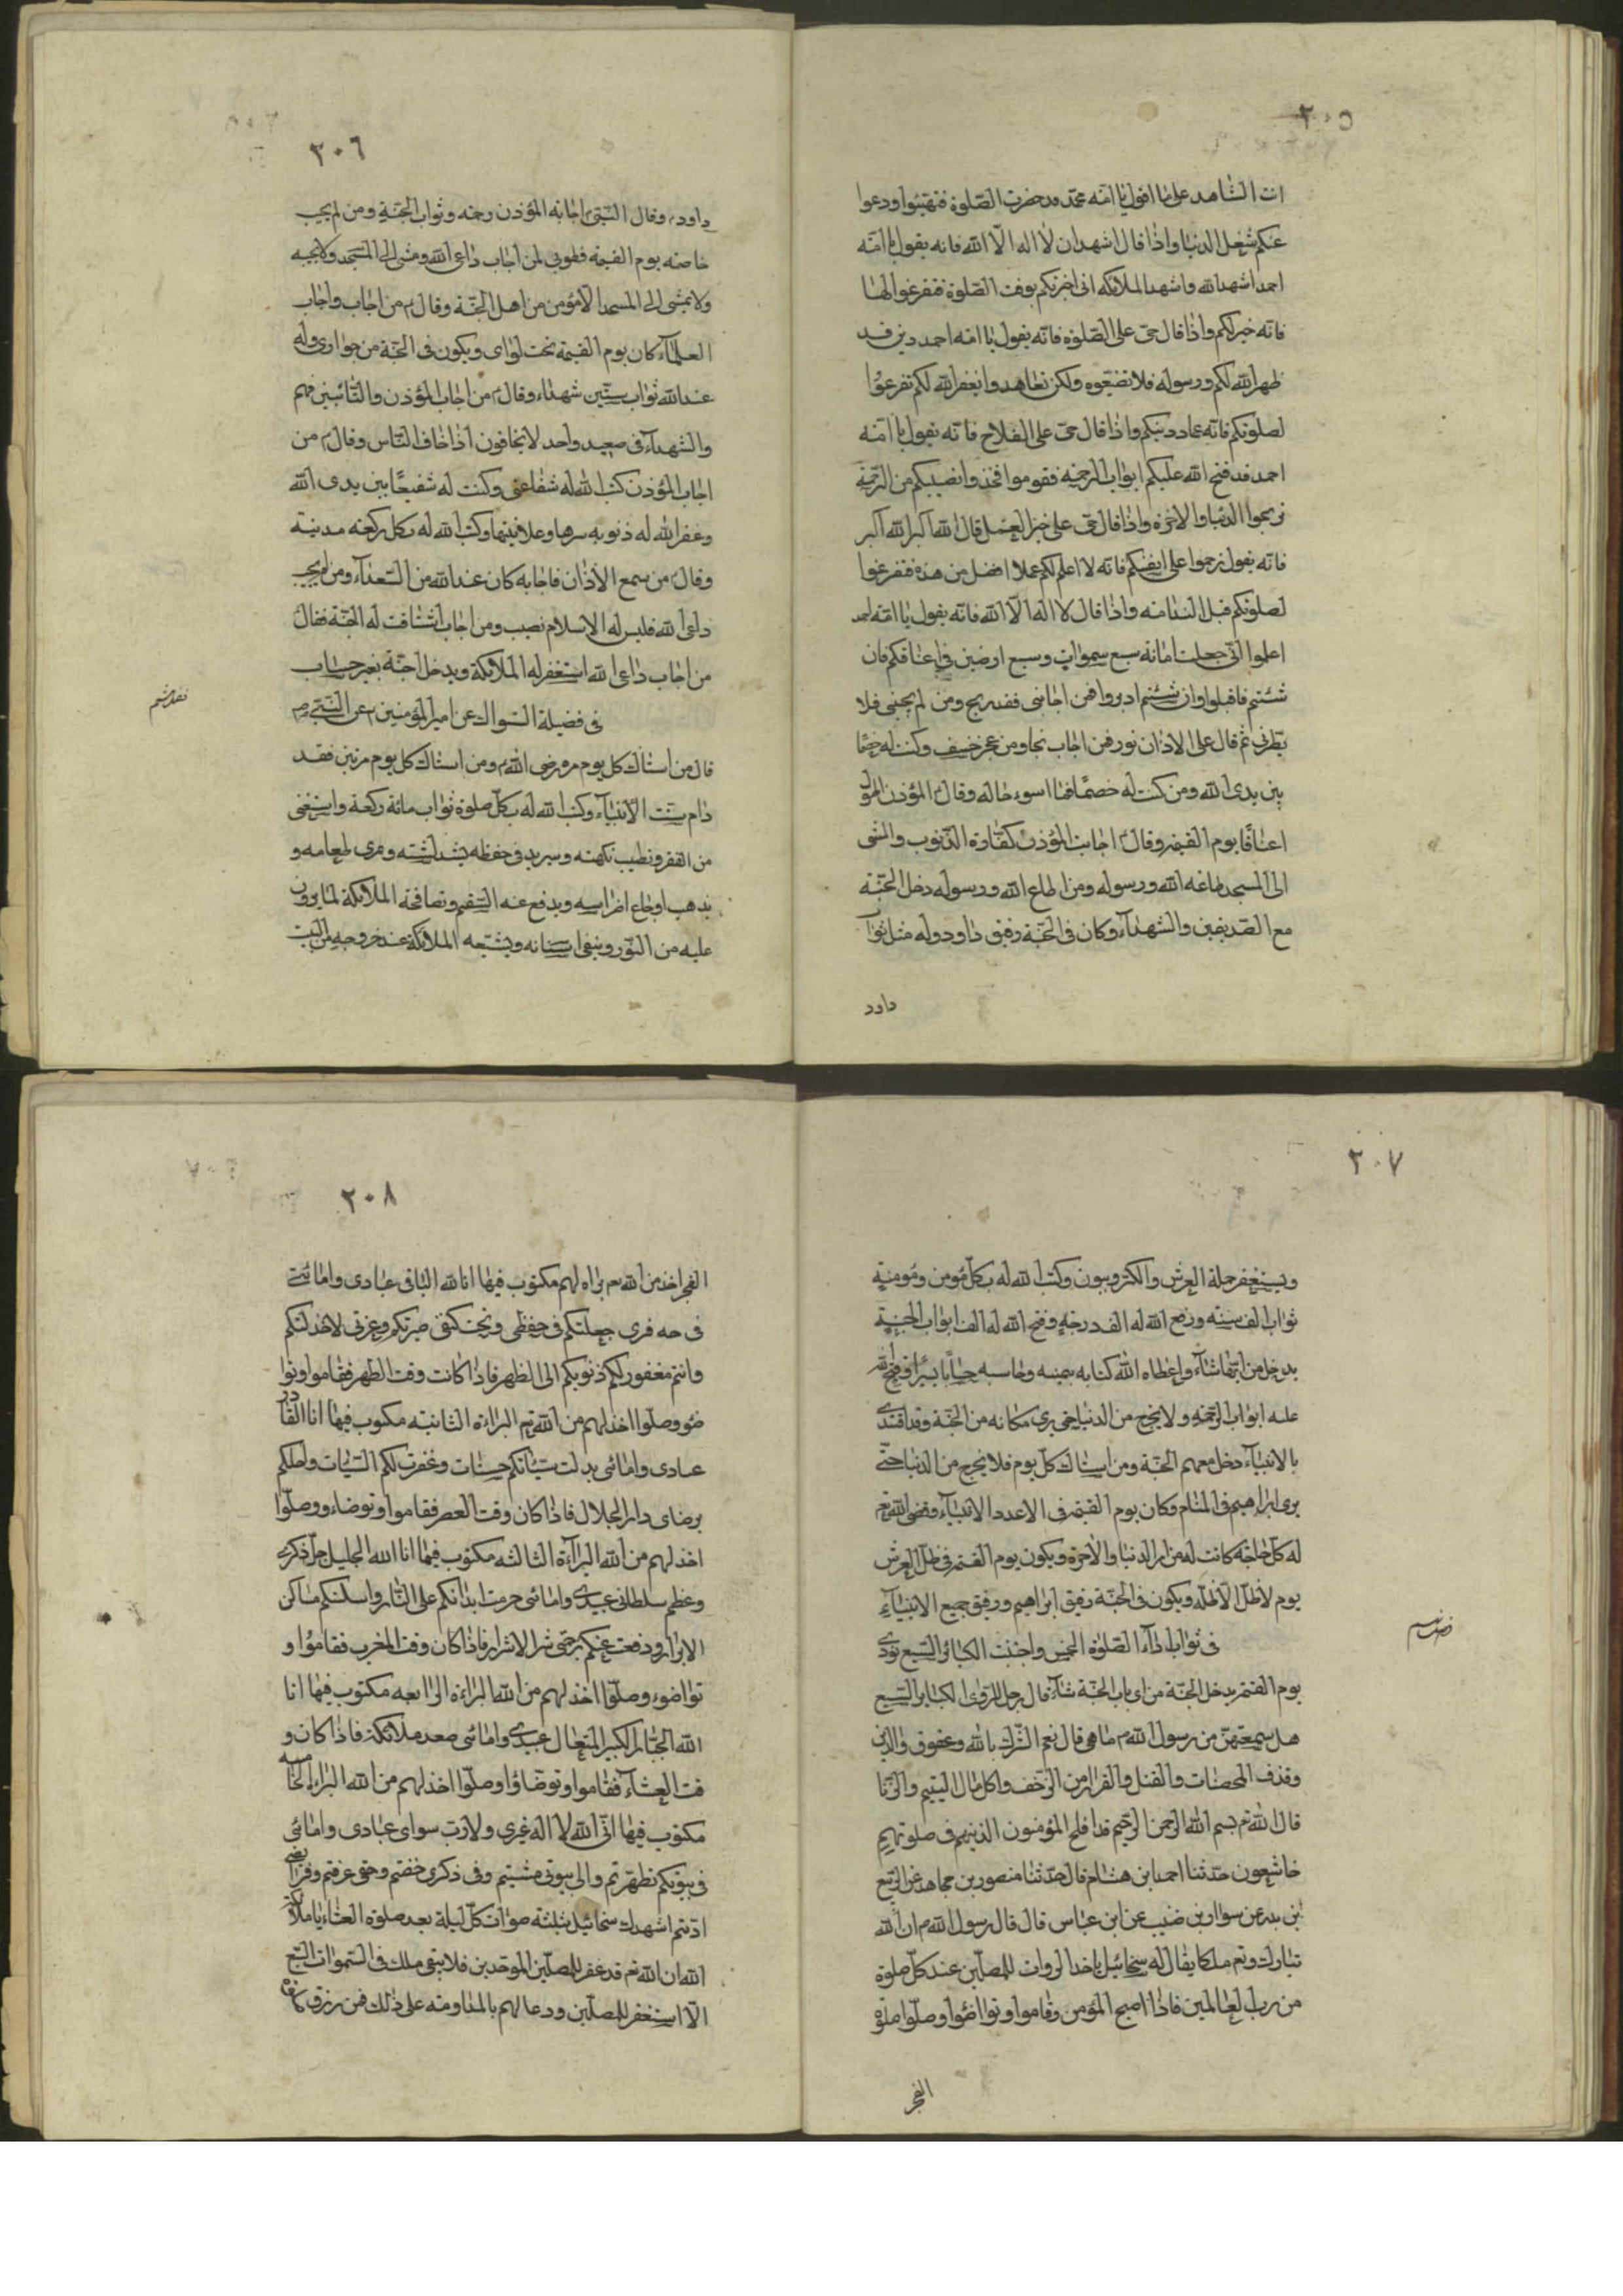 ٢٠٥
انت الشاهد على ما اقول يا امة محمد قد حضرت الصلوة فتهيئوا ودعوا
عنكم شغل الدنيا واذا قال اشهد ان لا اله الا الله فانه يقول يا امة
احمد اشهد الله واشهد الملائكه انى اخبرتكم بوقت الصلوة فتفرغوا لها
فانه خير لكم واذا قال حى على الصلوة فانه يقول يا امة احمد دين قد
ظهر الله لكم ورسوله فلا تضيعوه ولكن تعاهدوا يغفر الله لكم تفرغوا
لصلوتكم فانه عماد دينكم واذا قال حى على الفلاح فانه يقول يا امة
احمد قد فتح الله عليكم ابواب الرحمة فقوموا فخذوا نصيبكم من الرحمة
تربحوا الدنيا والاخرة واذا قال حى على خير العمل قال الله اكبر الله اكبر
فانه يقول ترحموا على انفسكم فانه لا اعلم لكم عملا افضل من هذه فتفرغوا
لصلوتكم قبل الندامة واذا قال لا اله الا الله فانه يقول يا امة احمد
اعلموا انى جعلت امانة سبع سموات وسبع ارضين فى اعناقكم فان
شئتم فاقبلوا وان شئتم ادبروا فمن اجابنى فقد ربح ومن لم يجبنى فلا
يضرنى ثم قال على الاذان نور فمن اجاب نجا ومن عجز خسف وكنت له خصما
بين يدى الله ومن كنت له خصما فما اسوء حاله وقال المؤذن اطول
اعناقا يوم القيمة وقال اجابة المؤذن كفارة الذنوب والمشى
الى المسجد طاعة الله ورسوله ومن اطاع الله ورسوله دخل الجنة
مع الصديقين والشهداء وكان فى الجنة رفيق داود وله مثل ثواب
داود
٢٠٦
داود وقال النبى اجابة المؤذن رحمة وثواب الجنة ومن لم يجب
خاصمته يوم القيمة فطوبى لمن اجاب داعى الله ومشى الى المسجد ولا يجيبه
ولا يمشى الى المسجد الا مؤمن من اهل الجنة وقال من اجاب واجاب
العلماء كان يوم القيمة تحت لوائى ويكون فى الجنة من جوارى وله
عند الله ثواب ستين شهداء وقال من اجاب المؤذن والتائبين فهم
والشهداء فى صعيد واحد لا يخافون اذا خاف الناس وقال من
اجاب المؤذن كتب الله له شفاعتى وكنت له شفيعا بين يدى الله
وغفر الله له ذنوبه سرها وعلانيتها وكتب الله له بكل ركعة مدينة
وقال من سمع الاذان فاجابه كان عند الله من السعداء ومن لم يجب
داعى الله فليس له الاسلام نصيب ومن اجاب اشتاقت له الجنة فقال
من اجاب داعى الله استغفر له الملائكة ويدخل الجنة بغير حساب
فى فضيلة السواك عن امير المؤمنين عن النبى ص
قال من استاك كل يوم مرة رضى الله ومن استاك كل يوم مرتين فقد
دام سنت الانبياء وكتب الله له بكل صلوة ثواب مائة ركعة واستغنى
من الفقر وتطيب نكهته ويزيد فى حفظه يشد لثته ويمرى طعامه و
يذهب اوجاع اضراسه ويدفع عنه السقم وتصافحة الملائكة لما يرون
عليه من النور وينقى اسنانه ويشيعه الملائكة عند خروجه من البيت
٢٠٧
ويستغفر حملة العرش والكروبيون وكتب الله له بكل مؤمن ومؤمنة
ثواب الف سنه ورفع الله له الف درجة وفتح الله له الف ابواب الجنة
يدخل من ايها شاء واعطاه الله كتابه بيمينه وحاسبه حسابا يسيرا وفتح الله
عليه ابواب الرحمة ولا يخرج من الدنيا حتى يرى مكانه من الجنة وقد اقتدى
بالانبياء دخل معهم الجنة ومن استاك كل يوم فلا يخرج من الدنيا حتى
يرى ابراهيم فى المنام وكان يوم القيمة فى الاعدد الانبياء وقضى الله تعم
له كل حاجة كانت له من امر الدنيا والاخرة ويكون يوم القيمة فى ظل العرش
يوم لا ظل الا ظله ويكون فى الجنة رفيق ابراهيم ورفيق جميع الانبياء
فى ثواب اداء الصلوة الخمس واجتنب الكبائر السبع نودى
يوم القيمة يدخل الجنة من اى باب الجنة شاء قال رجل للراوى الكبائر السبع
هل سمعتهن من رسول الله ما هى قال نعم الشرك بالله وعقوق والدين
وقذف المحصنات والقتل والفرار من الزحف واكل مال اليتيم والزنا
قال الله تعم بسم الله الرحمن الرحيم قد افلح المؤمنون الذينهم فى صلوتهم
خاشعون حدثنا احمد ابن هشام قال حدثنا منصور بن مجاهد عن الربيع
بن بدر عن سوار بن ضبيب عن ابن عباس قال قال رسول الله ان الله
تبارك وتعم ملكا يقال له سخائيل ياخذ البروات للمصلين عند كل صلوة
من رب العالمين فاذا اصبح المؤمن وقاموا وتواضؤا وصلوا صلوة
الفجر
٢٠٨
الفجر اخذ من الله براة لهم مكتوب فيها انا الله الباقى عبادى وامائى
فى حمه فرى جعلتكم فى حفظى وتحت كنفى صيرتكم وعزتى لاخذلتكم
وانتم مغفور لكم ذنوبكم الى الظهر فاذا كانت وقت الظهر فقاموا وتوا
ضؤ وصلوا اخذ لهم من الله تعم البراءة الثانية مكتوب فيها انا القادر
عبادى وامائى بدلت سيئاتكم حسنات وغفرت لكم السيئات واحلكم
برضاى دار الجلال فاذا كان وقت العصر فقاموا وتوضاء ووصلوا
اخذ لهم من الله البراءة الثالثه مكتوب فيها انا الله الجليل جل ذكرى
وعظم سلطانى عبيدى وامائى حرمت ابدانكم على النار واسكنتكم مساكن
الابرار ودفعت عنكم برحمتى شر الاشرار فاذا كان وقت المغرب فقاموا و
تواضوء وصلوا اخذ لهم من الله البراءة الرابعه مكتوب فيها انا
الله الجبار الكبير المتعال عبيدى وامائى صعد ملائكة فاذا كان و
قت العشاء فقاموا وتوضاؤا وصلوا اخذ لهم من الله البراءة الخامسه
مكتوب فيها انى الله لا اله غيرى ولا رب سواى عبادى وامائى
فى بيوتكم تطهرتم والى بيوتى مشيتم وفى ذكرى خضتم وحقى عرفتم وفرائضى
اديتم اشهدك سخائيل بثلثة صوات كل ليلة بعد صلوة العشاء يا ملائكة
الله ان الله تعم قد غفر للمصلين الموحدين فلا يبقى ملك فى السموات السبع
الا استغفر للمصلين ودعا لهم بالمداومة على ذلك فمن رزق